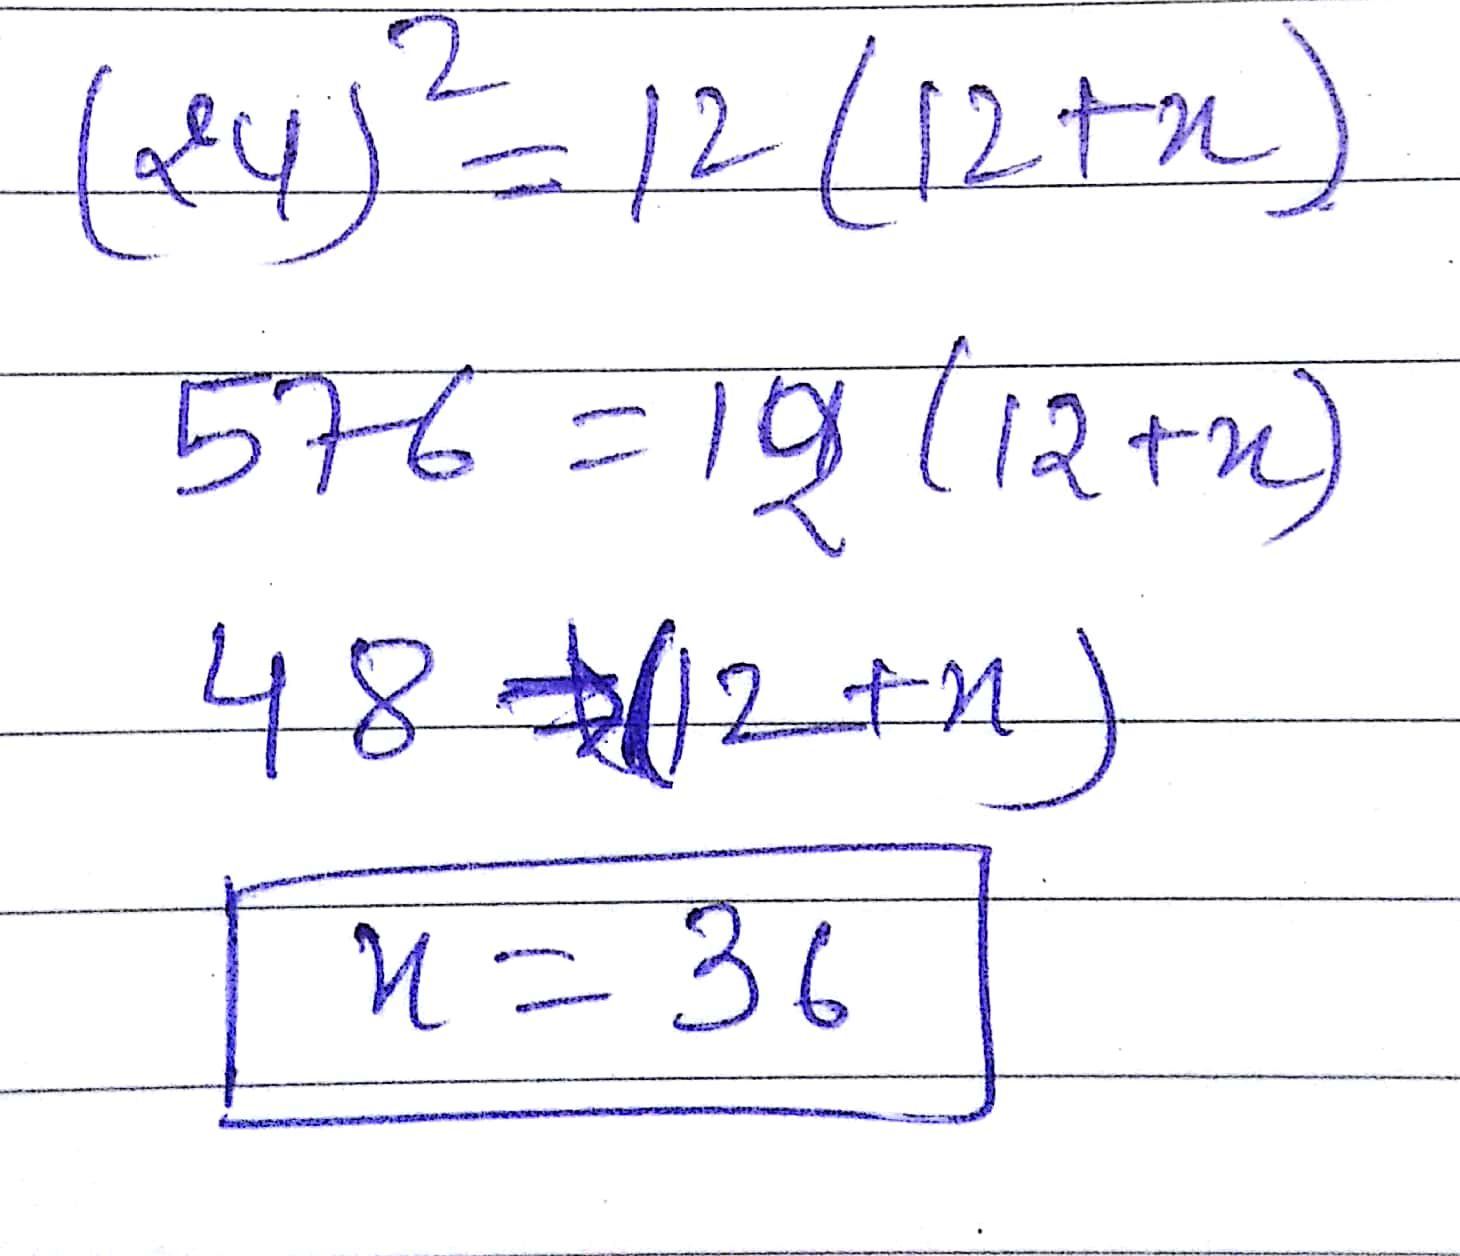 (24)² = 12 (12 + x)
576 = 12 (12 + x)
48 = (12 + x)
x = 36